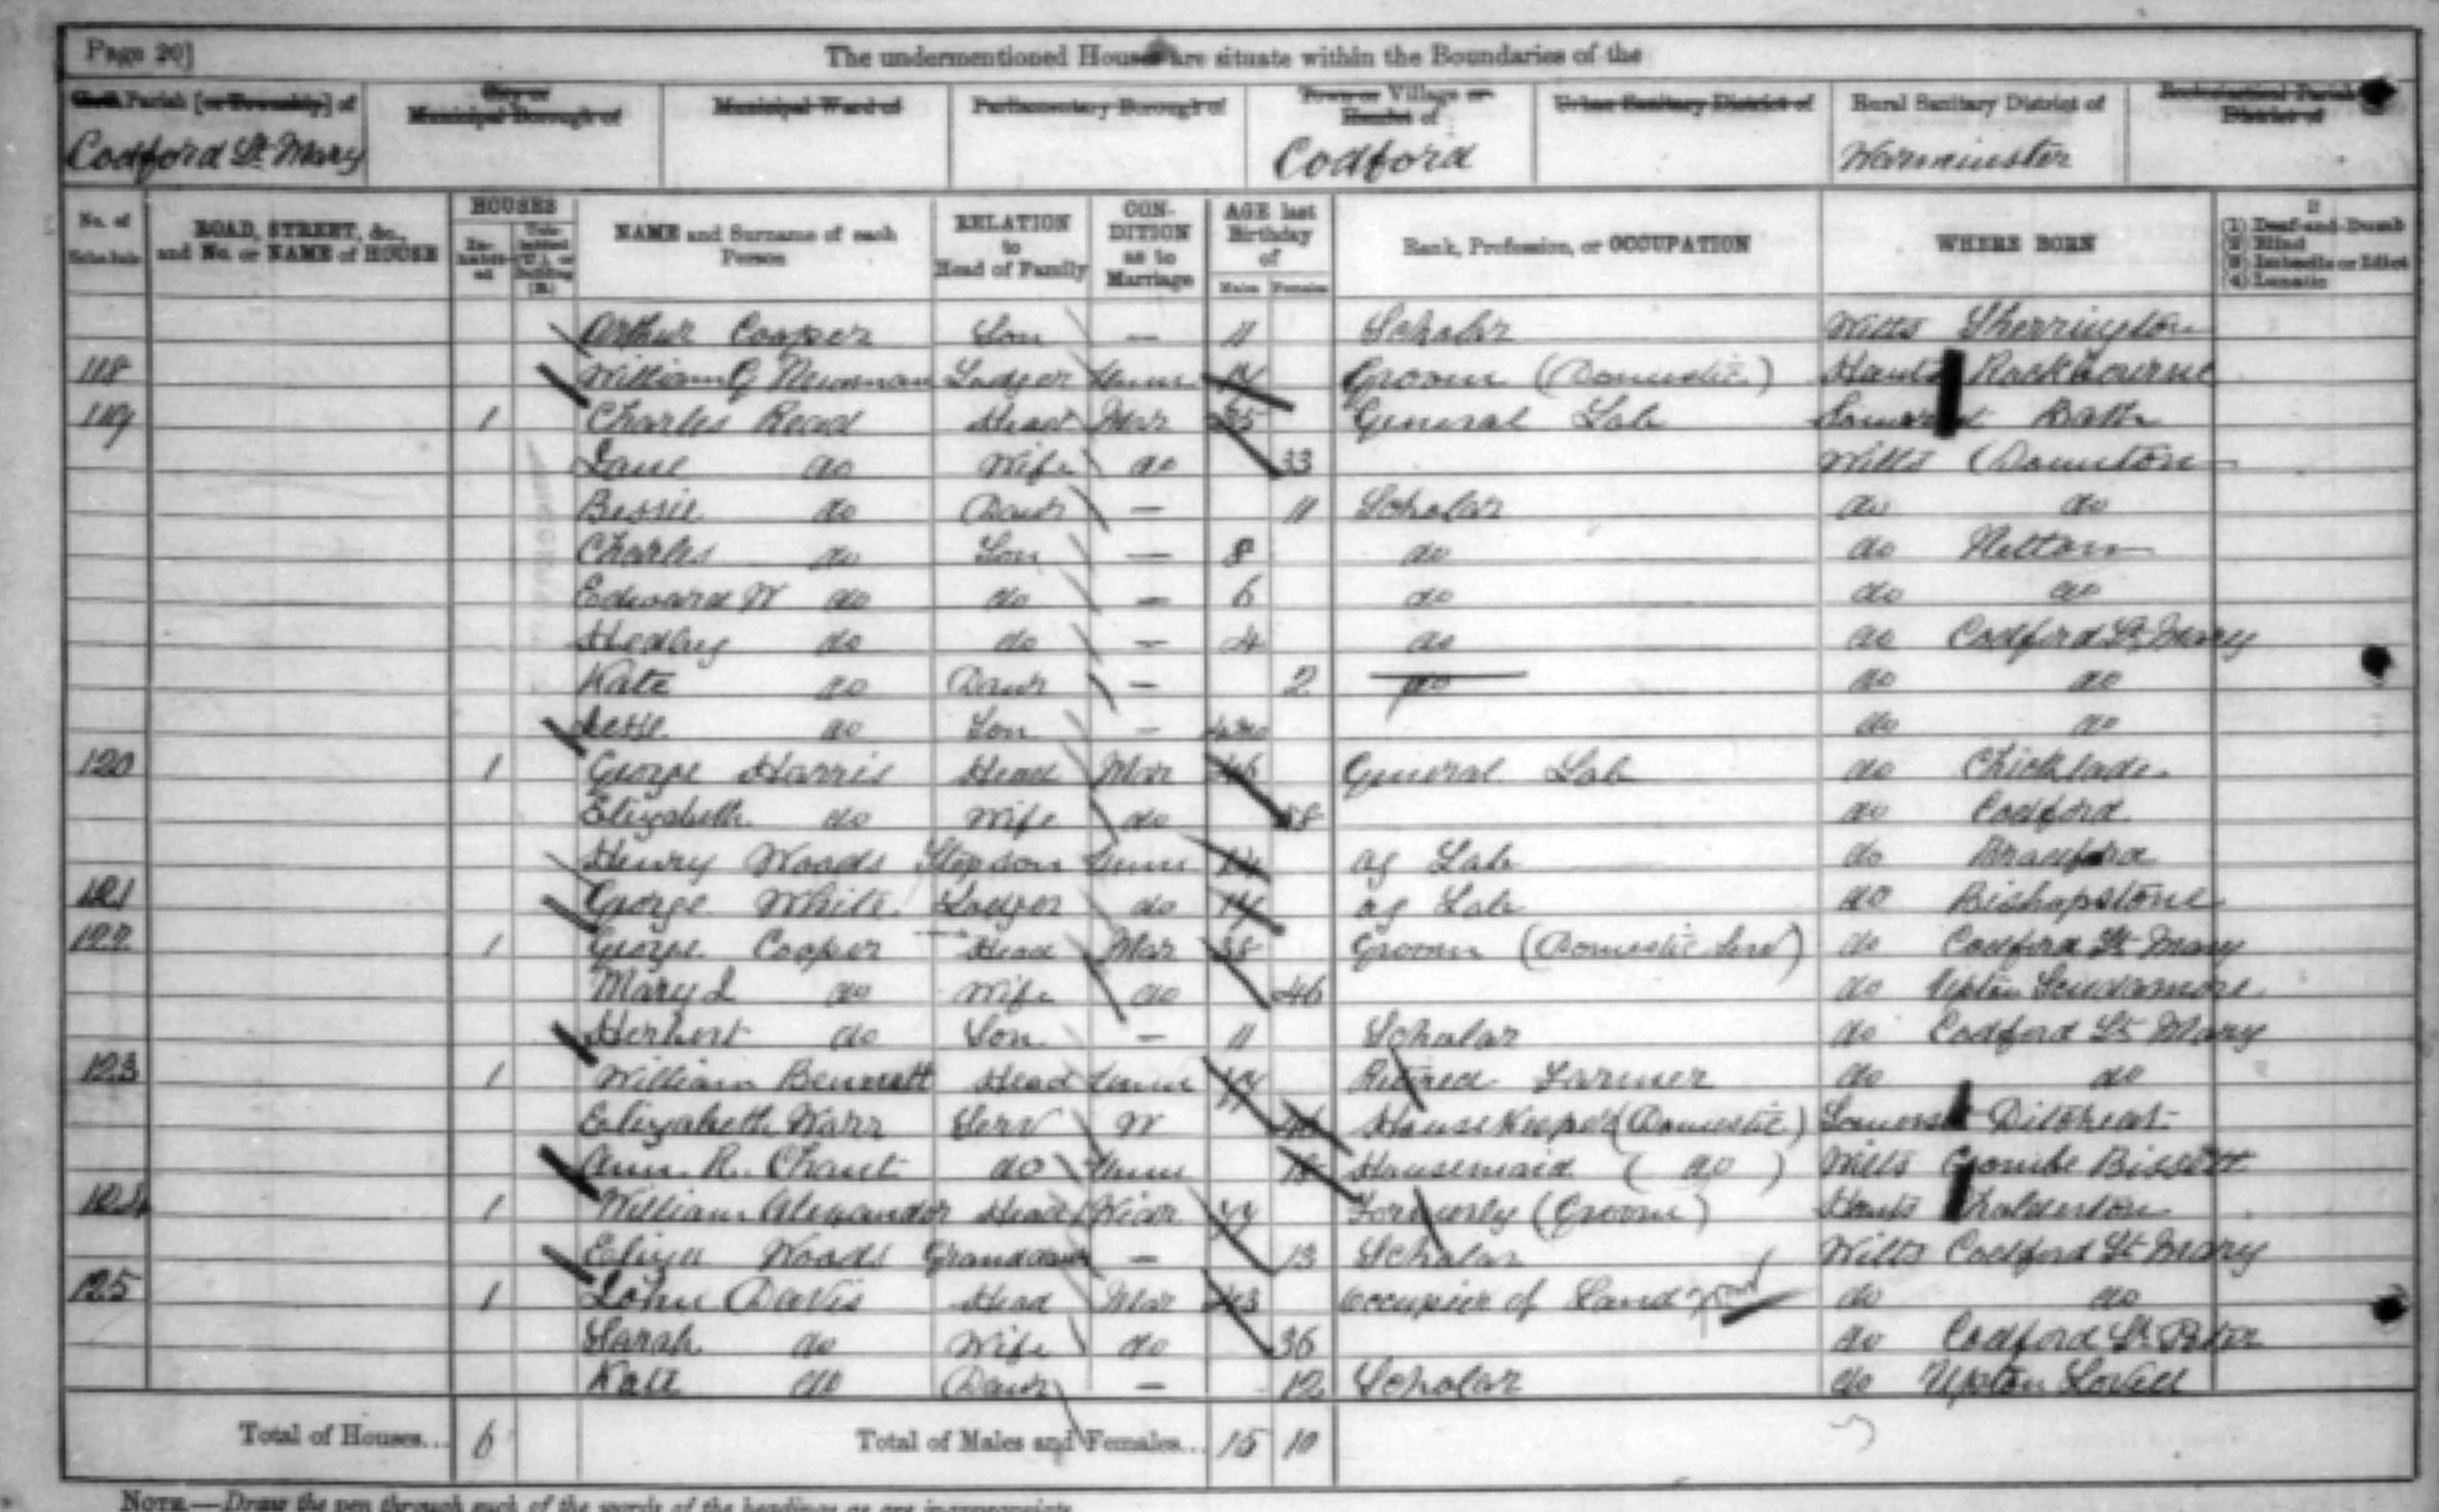 Page 20]
The undermentioned Houses are situate within the Boundaries of the
Civil Parish [or Township] of
City or Municipal Borough of
Municipal Ward of
Parliamentary Borough of
Town or Village or Hamlet of
Urban Sanitary District of
Rural Sanitary District of
Ecclesiastical Parish or District of
Codford St. Mary Codford Warminster
No. of Schedule
ROAD, STREET, &c., and No. or NAME of HOUSE
HOUSES
In-habit-ed
NAME and Surname of each Person
RELATION to Head of Family
CON-DITION as to Marriage
AGE last Birthday of
Males Females
Rank, Profession, or OCCUPATION
WHERE BORN
(1) Deaf-and-Dumb
(2) Blind
(3) Imbecile or Idiot
(4) Lunatic
Arthur Cooper Son — 11 Scholar Wilts Sherrington
118 William G Newman Lodger Unm Groom (Domestic) Hants Rockbourne
119 1 Charles Read Head Mar 35 General Lab Somerset Bath
Jane do Wife do 33 Wilts Downton
Bessie do Daur — 11 Scholar do do
Charles do Son — 8 do do Netton
Edward W do do — 6 do do do
Hedley do do — 4 do do Codford St. Mary
Kate do Daur — 2 do do do
Jesse do Son — do do
120 1 George Harris Head Mar General Lab do Chicklade
Elizabeth do Wife do do Codford
Henry Woods Stepson Unm ag Lab do
121 George White Lodger do ag Lab do Bishopstone
122 1 George Cooper Head Mar Groom (Domestic Serv) do Codford St. Mary
Mary J do Wife do 46 do Upton Scudamore
Herbert do Son — 11 Scholar do Codford St. Mary
123 1 William Bennett Head Unm Retired Farmer do do
Elizabeth Warr Serv W Housekeeper (Domestic) Somerset Ditcheat
Ann R. Chant do Unm Housemaid (do) Wilts Coombe Bissett
124 1 William Alexander Head Widr Formerly (Groom) Hants Cholderton
Eliza Woods Granddaur — 13 Scholar Wilts Codford St. Mary
125 1 John Davis Head Mar 43 occupier of Land do do
Sarah do Wife do 36 do Codford St. Peter
Kate do Daur — 12 Scholar do Upton Lovell
Total of Houses... 6 Total of Males and Females... 15 10
NOTE.—Draw the pen through such of the words of the headings as are inappropriate.